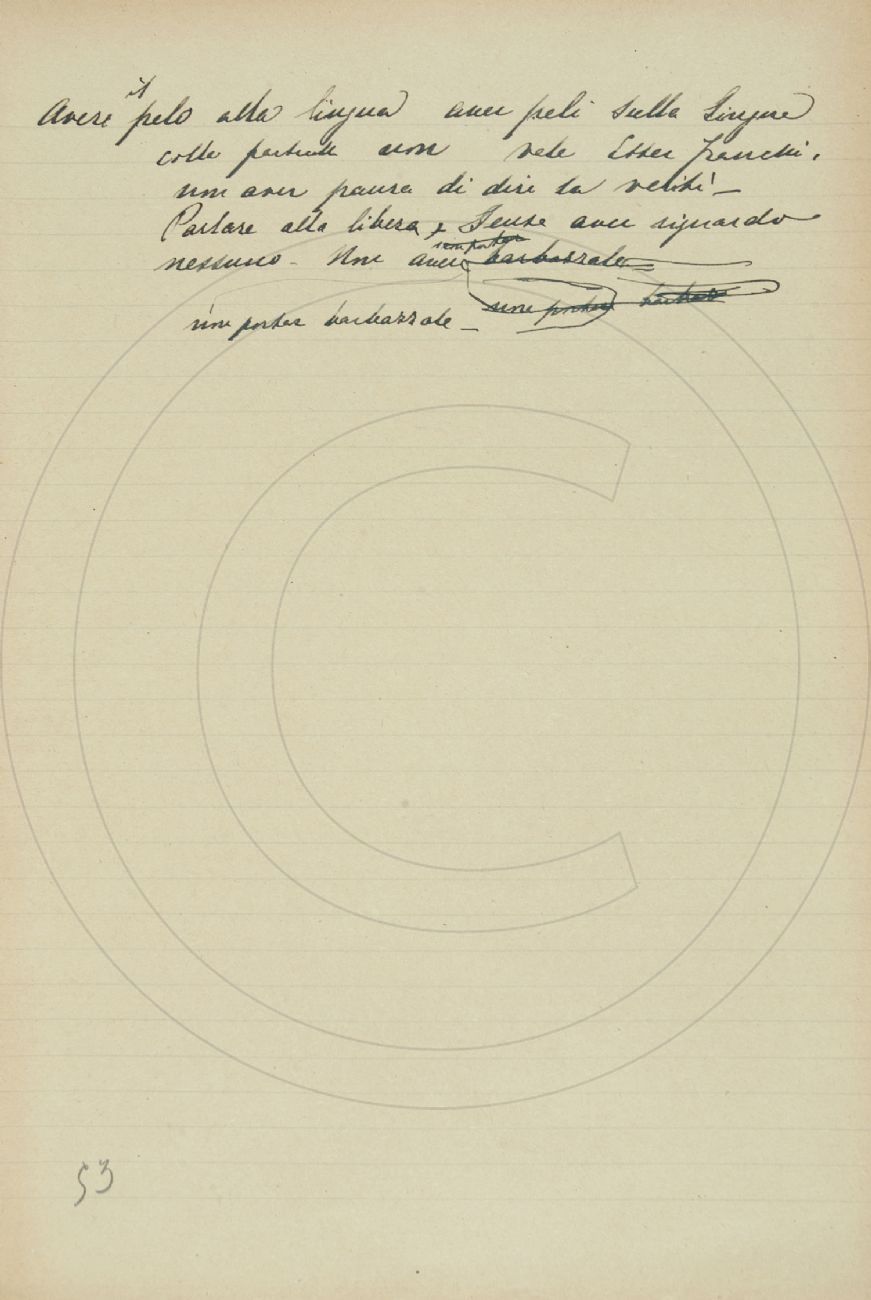 Avere il pelo alla lingua aver peli sulla Lingua
colle particelle non vale Esser franchi,
non aver paura di dire la verità —
Parlare alla libera e Senza aver riguardo
nessuno - Non aver non portar barbazzale
non portar barbaz
non portar barbazzale —
53